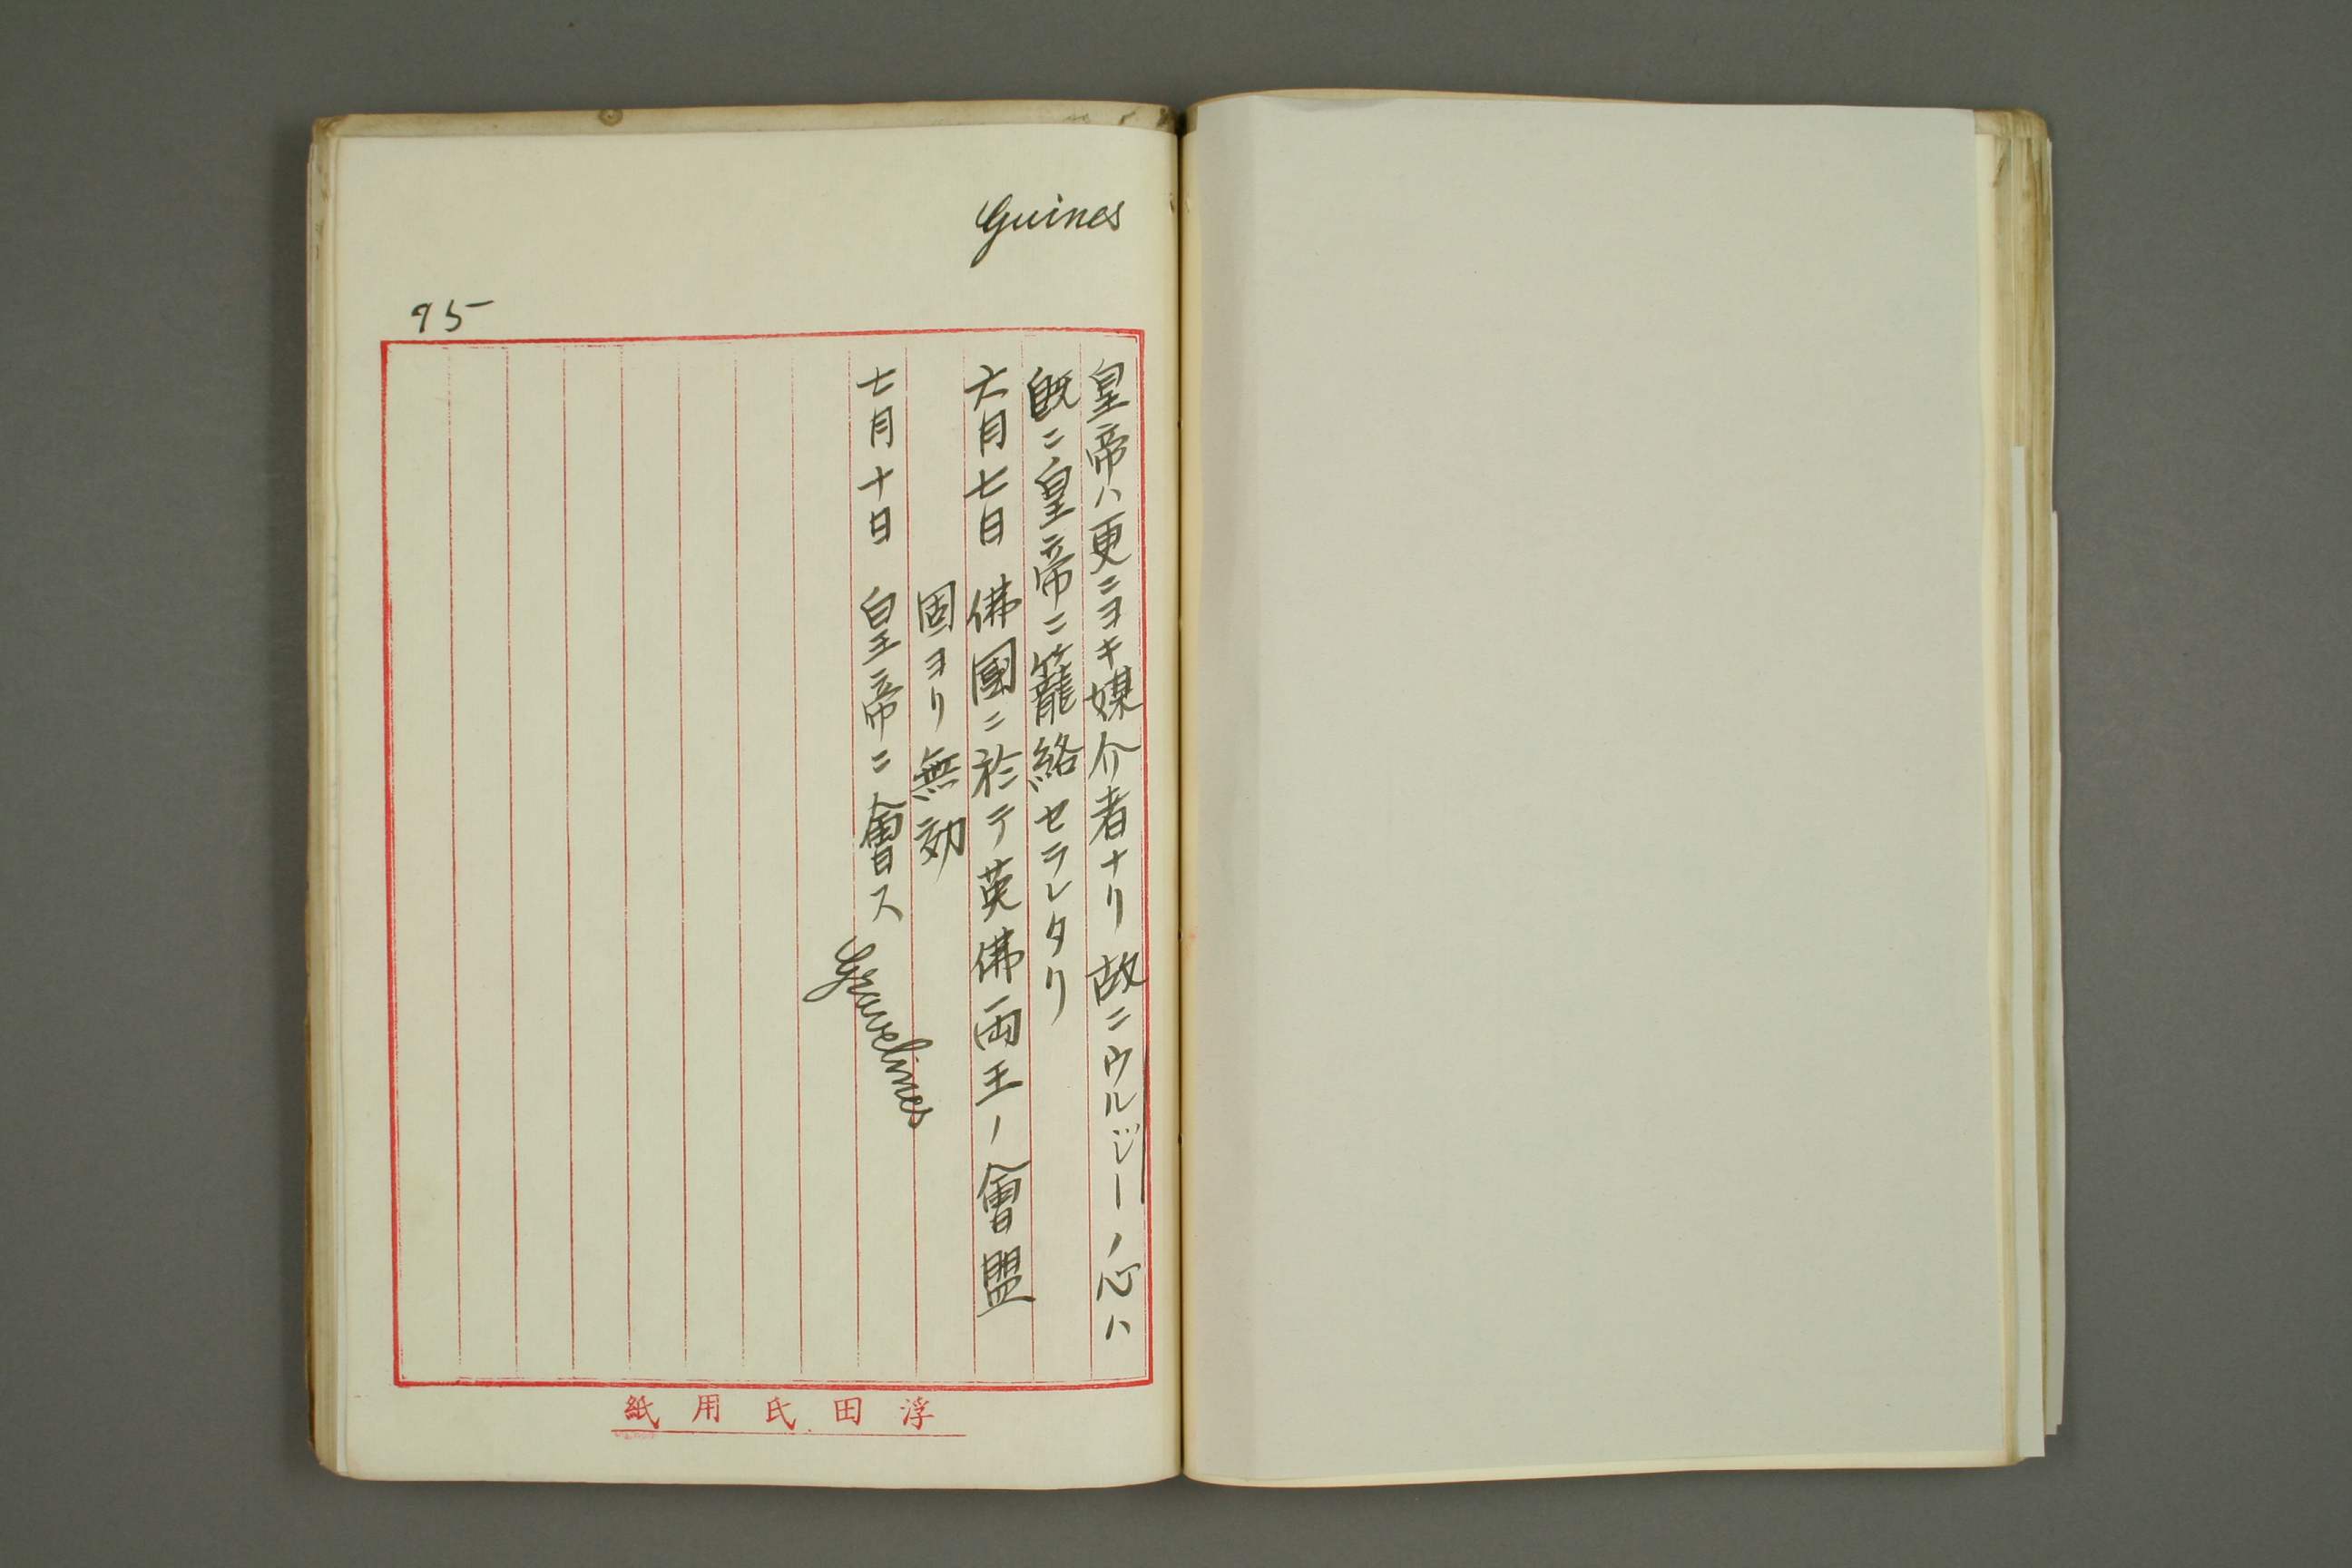 Guines
皇帝ハ更ニヨキ媒介者ナリ故ニウルジーノ心ハ
既ニ皇帝ニ籠絡セラレタリ
六月七日 佛國ニ於テ英佛両王ノ會盟
固ヨリ無効
七月十日 皇帝ニ會ス Gravelines
75
浮田氏用紙